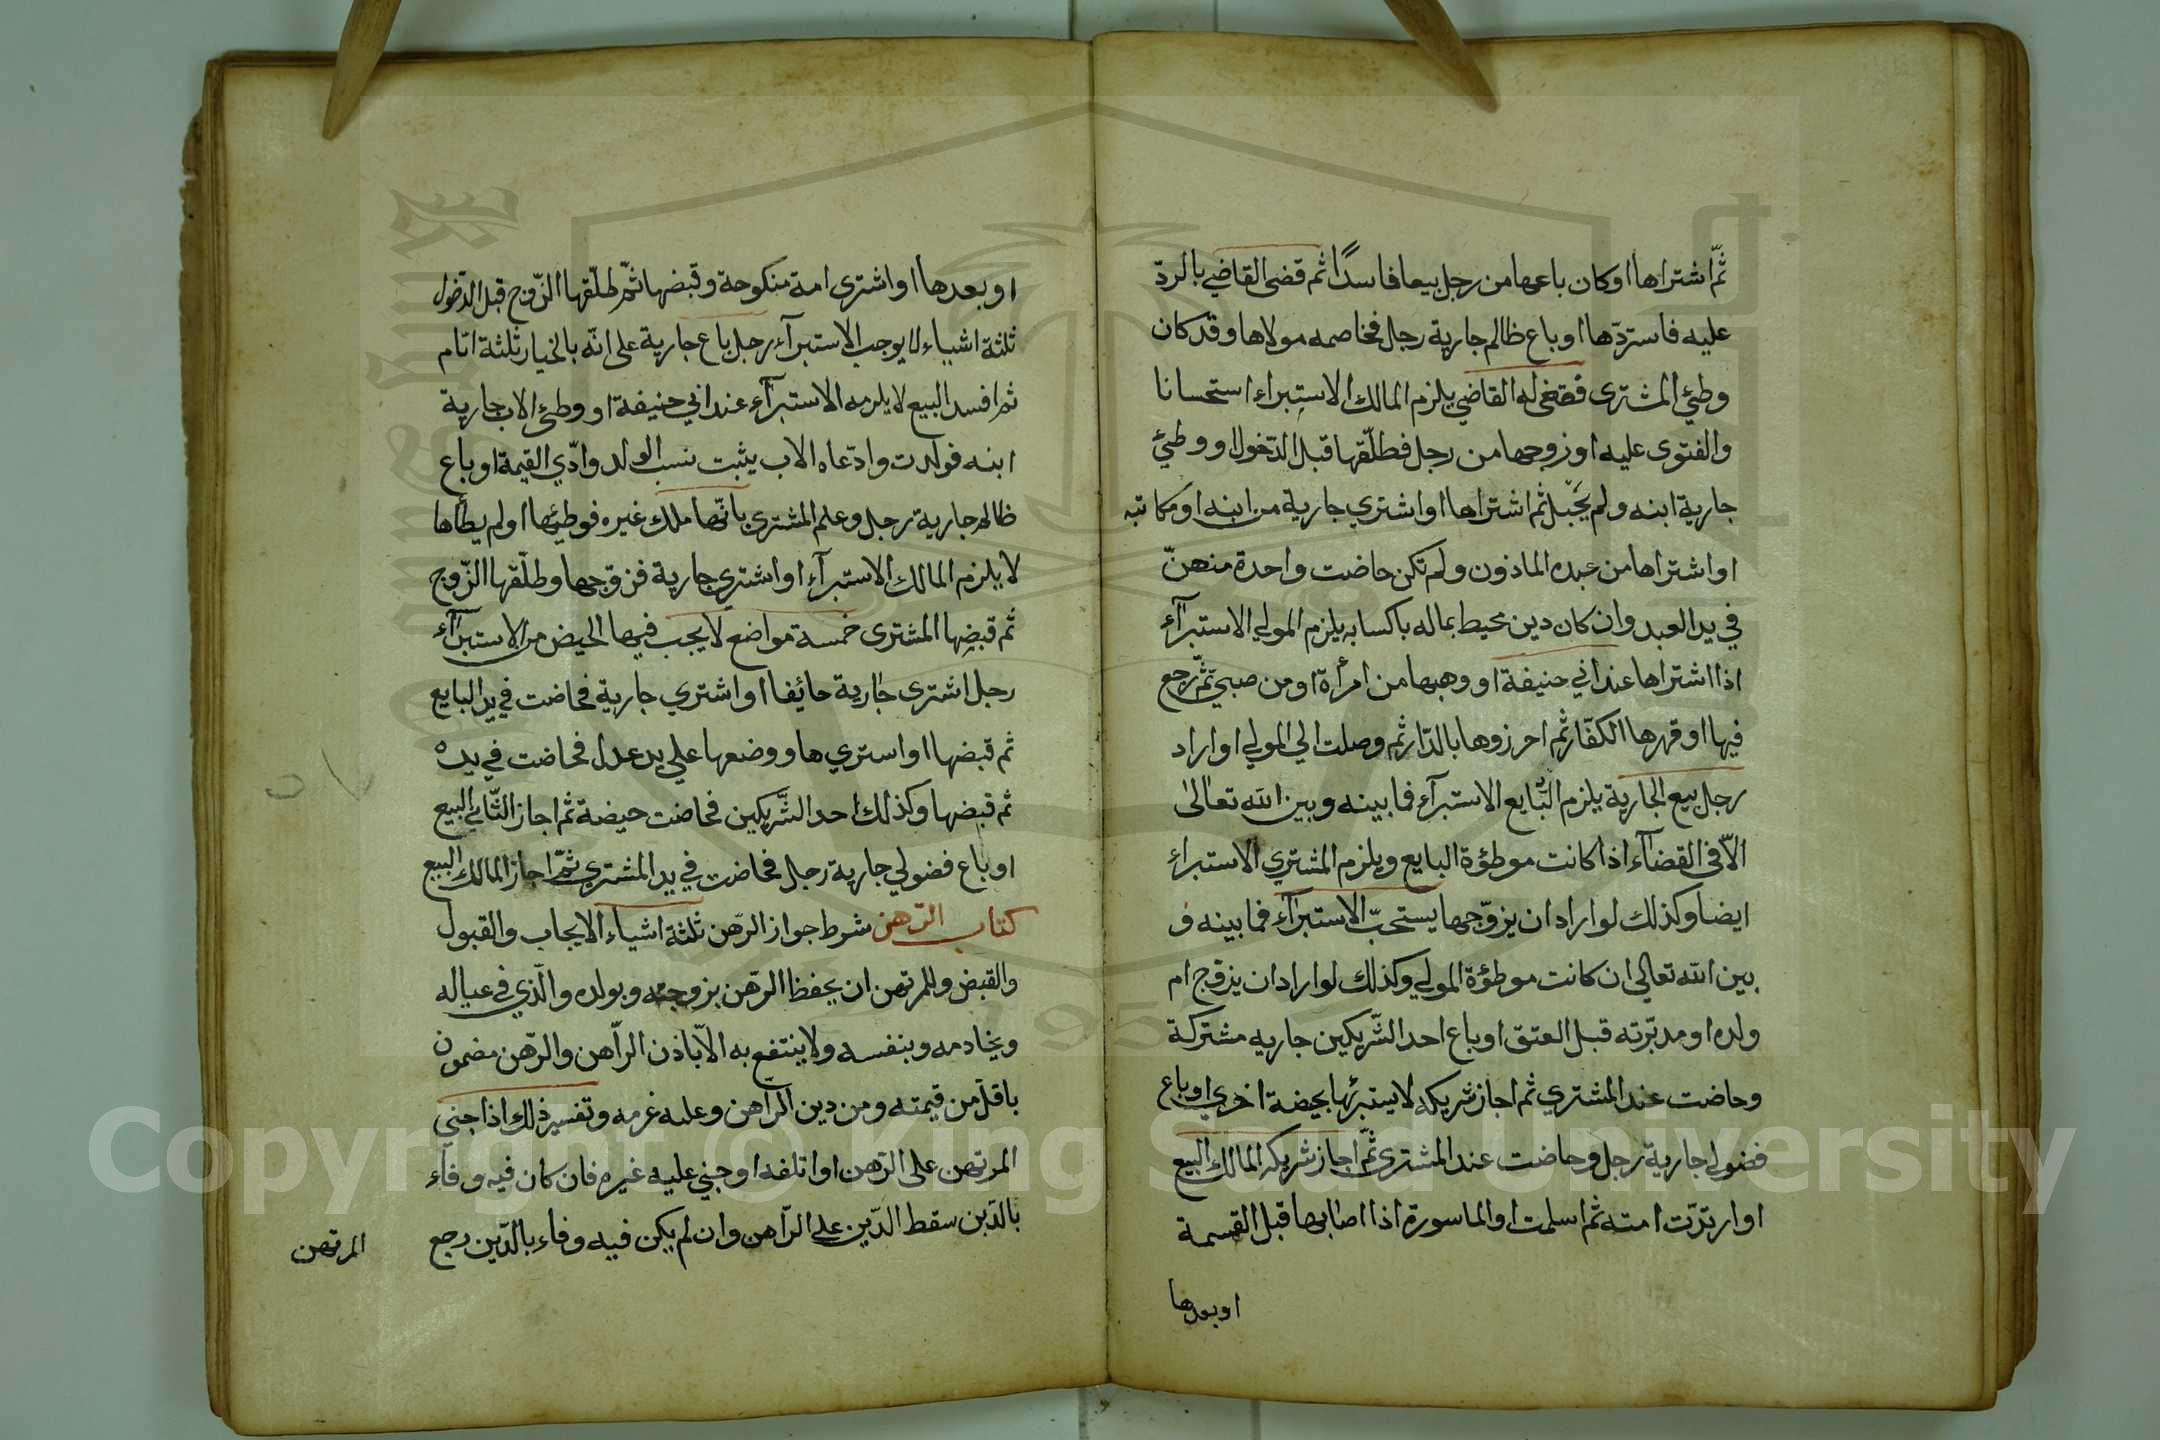 ثمّ اشتراها او كان باعها من رجل بيعا فاسدًا ثم قضى القاضي بالردّ
عليه فاستردّها او باع ظالم جارية رجل فخاصمه مولاها وقد كان
وطئ المشترى فقضى له القاضي يلزم المالك الاستبراء استحسانا
والفتوى عليه او زوجها من رجل فطلّقها قبل الدّخول او وطئ
جارية ابنه ولم يحبل ثم اشتراها او اشتري جارية من ابنه او مكاتبه
او اشتراها من عبده الماذون ولم تكن حاضت واحدة منهنّ
في يد العبد وان كان دين محيط بماله باكسابه يلزم المولي الاستبرآء
اذا اشتراها عند ابي حنيفة او وهبها من امرأة او من صبي ثمّ رجع
فيها او قهرها الكفّار ثم احرزوها بالدّار ثم وصلت الي المولي او اراد
رجل بيع الجارية يلزم البايع الاستبرآء فما بينه وبين الله تعالى
الاّ فى القضآء اذا كانت موطؤة البايع ويلزم المشتري الاستبراء
ايضا وكذلك لو اراد ان يزوّجها يستحبّ الاستبرآء فما بينه و
بين الله تعالى ان كانت موطؤة المولي وكذلك لو اراد ان يزوّج ام
ولده او مدبّرته قبل العتق او باع احد الشّريكين جاريه مشتركة
وحاضت عند المشتري ثم اجاز شريكه لا يستبرئها بحيضة اخرى او باع
فضولي جارية رجل وحاضت عند المشترى ثمّ اجاز شريكه المالك البيع
او ارتدّت امته ثم اسلمت او الماسورة اذا اصابها قبل القسمة
او بعدها
او بعدها او اشترى امة منكوحة وقبضها ثمّ طلّقها الزّوج قبل الدّخول
ثلثة اشياء لا يوجب الاستبرآء رجل باع جارية على انّه بالخيار ثلثة ايّام
ثم افسد البيع لا يلزمه الاستبرآء عند ابي حنيفة او وطئ الاب جارية
ابنه فولدت وادّعاه الاب يثبت نسب الولد وادّي القيمة او باع
ظالم جارية رجل وعلم المشتري بانّها ملك غيره فوطئها او لم يطأها
لا يلزم المالك الاستبرآء او اشتري جارية فزوّجها وطلّقها الزّوج
ثم قبضها المشترى خمسة مواضع لا يجب فيها الحيض من الاستبرآء
رجل اشترى جارية حائضا او اشتري جارية فحاضت في يد البايع
ثم قبضها او استري ها ووضعها علي يد عدل فحاضت في يده
ثم قبضها وكذلك احد الشّريكين فحاضت حيضة ثم اجاز الثّاني البيع
او باع فضولي جارية رجل فحاضت في يد المشتري ثمّ اجاز المالك البيع
كتاب الرّهن شرط جواز الرّهن ثلثة اشياء الايجاب والقبول
والقبض وللمرتهن ان يحفظ الرّهن بزوجته وبولده والّذي فى عياله
ويخادمه وبنفسه ولا ينتفع به الاّ باذن الرّاهن والرّهن مضمون
باقلّ من قيمته ومن دين الرّاهن وعليه غرمه وتفسير ذلك اذا جني
المرتهن على الرّهن او اتلفه او جني عليه غيره فان كان فيه وفاء
بالدّين سقط الدّين علي الرّاهن وان لم يكن فيه وفاء بالدّين رجع
المرتهن
Copyright © King Saud University